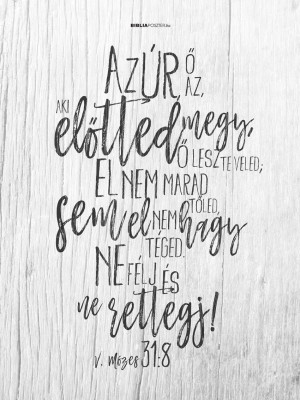 BIBLIAPOSZTER.hu
AZ ÚR, Ő
AZ,
AKI
előtted megy,
Ő LESZ TE VELED;
EL NEM MARAD
TŐLED,
sem el NEM hagy
TÉGED.
NE FÉLJ ÉS
ne rettegj!
V. Mózes 31:8